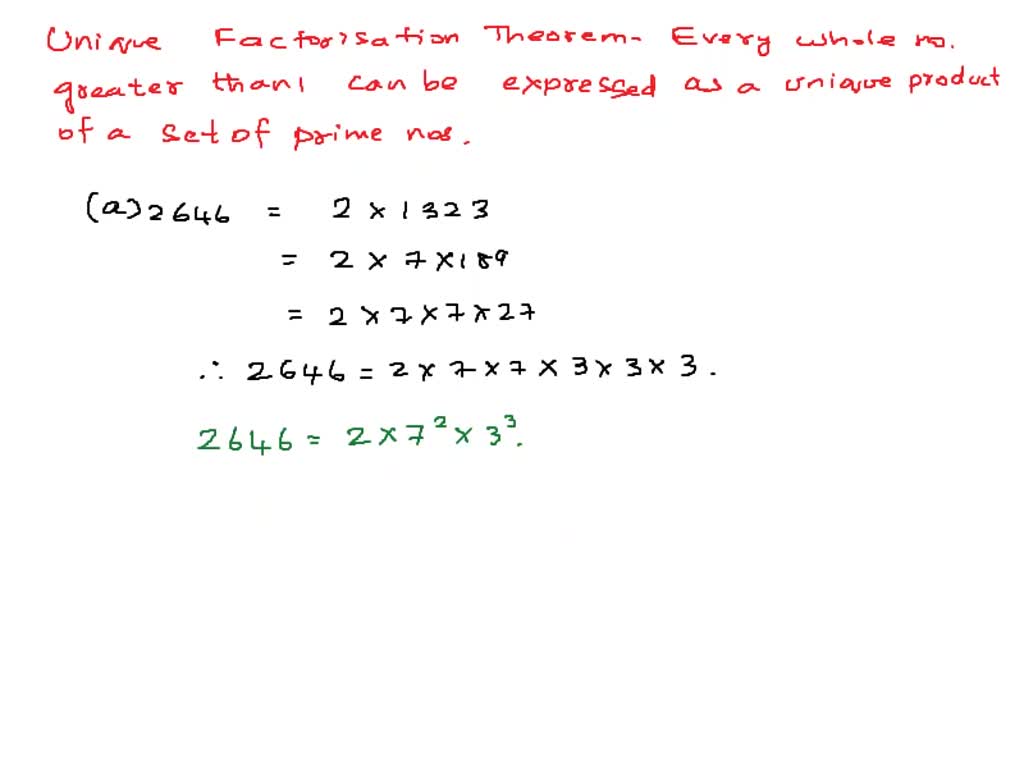 Unique Factorisation Theorem- Every whole no.
greater than 1 can be expressed as a unique product
of a set of prime nos.
(a) 2646 = 2 × 1323
= 2 × 7 × 189
= 2 × 7 × 7 × 27
∴ 2646 = 2 × 7 × 7 × 3 × 3 × 3.
2646 = 2 × 7² × 3³.